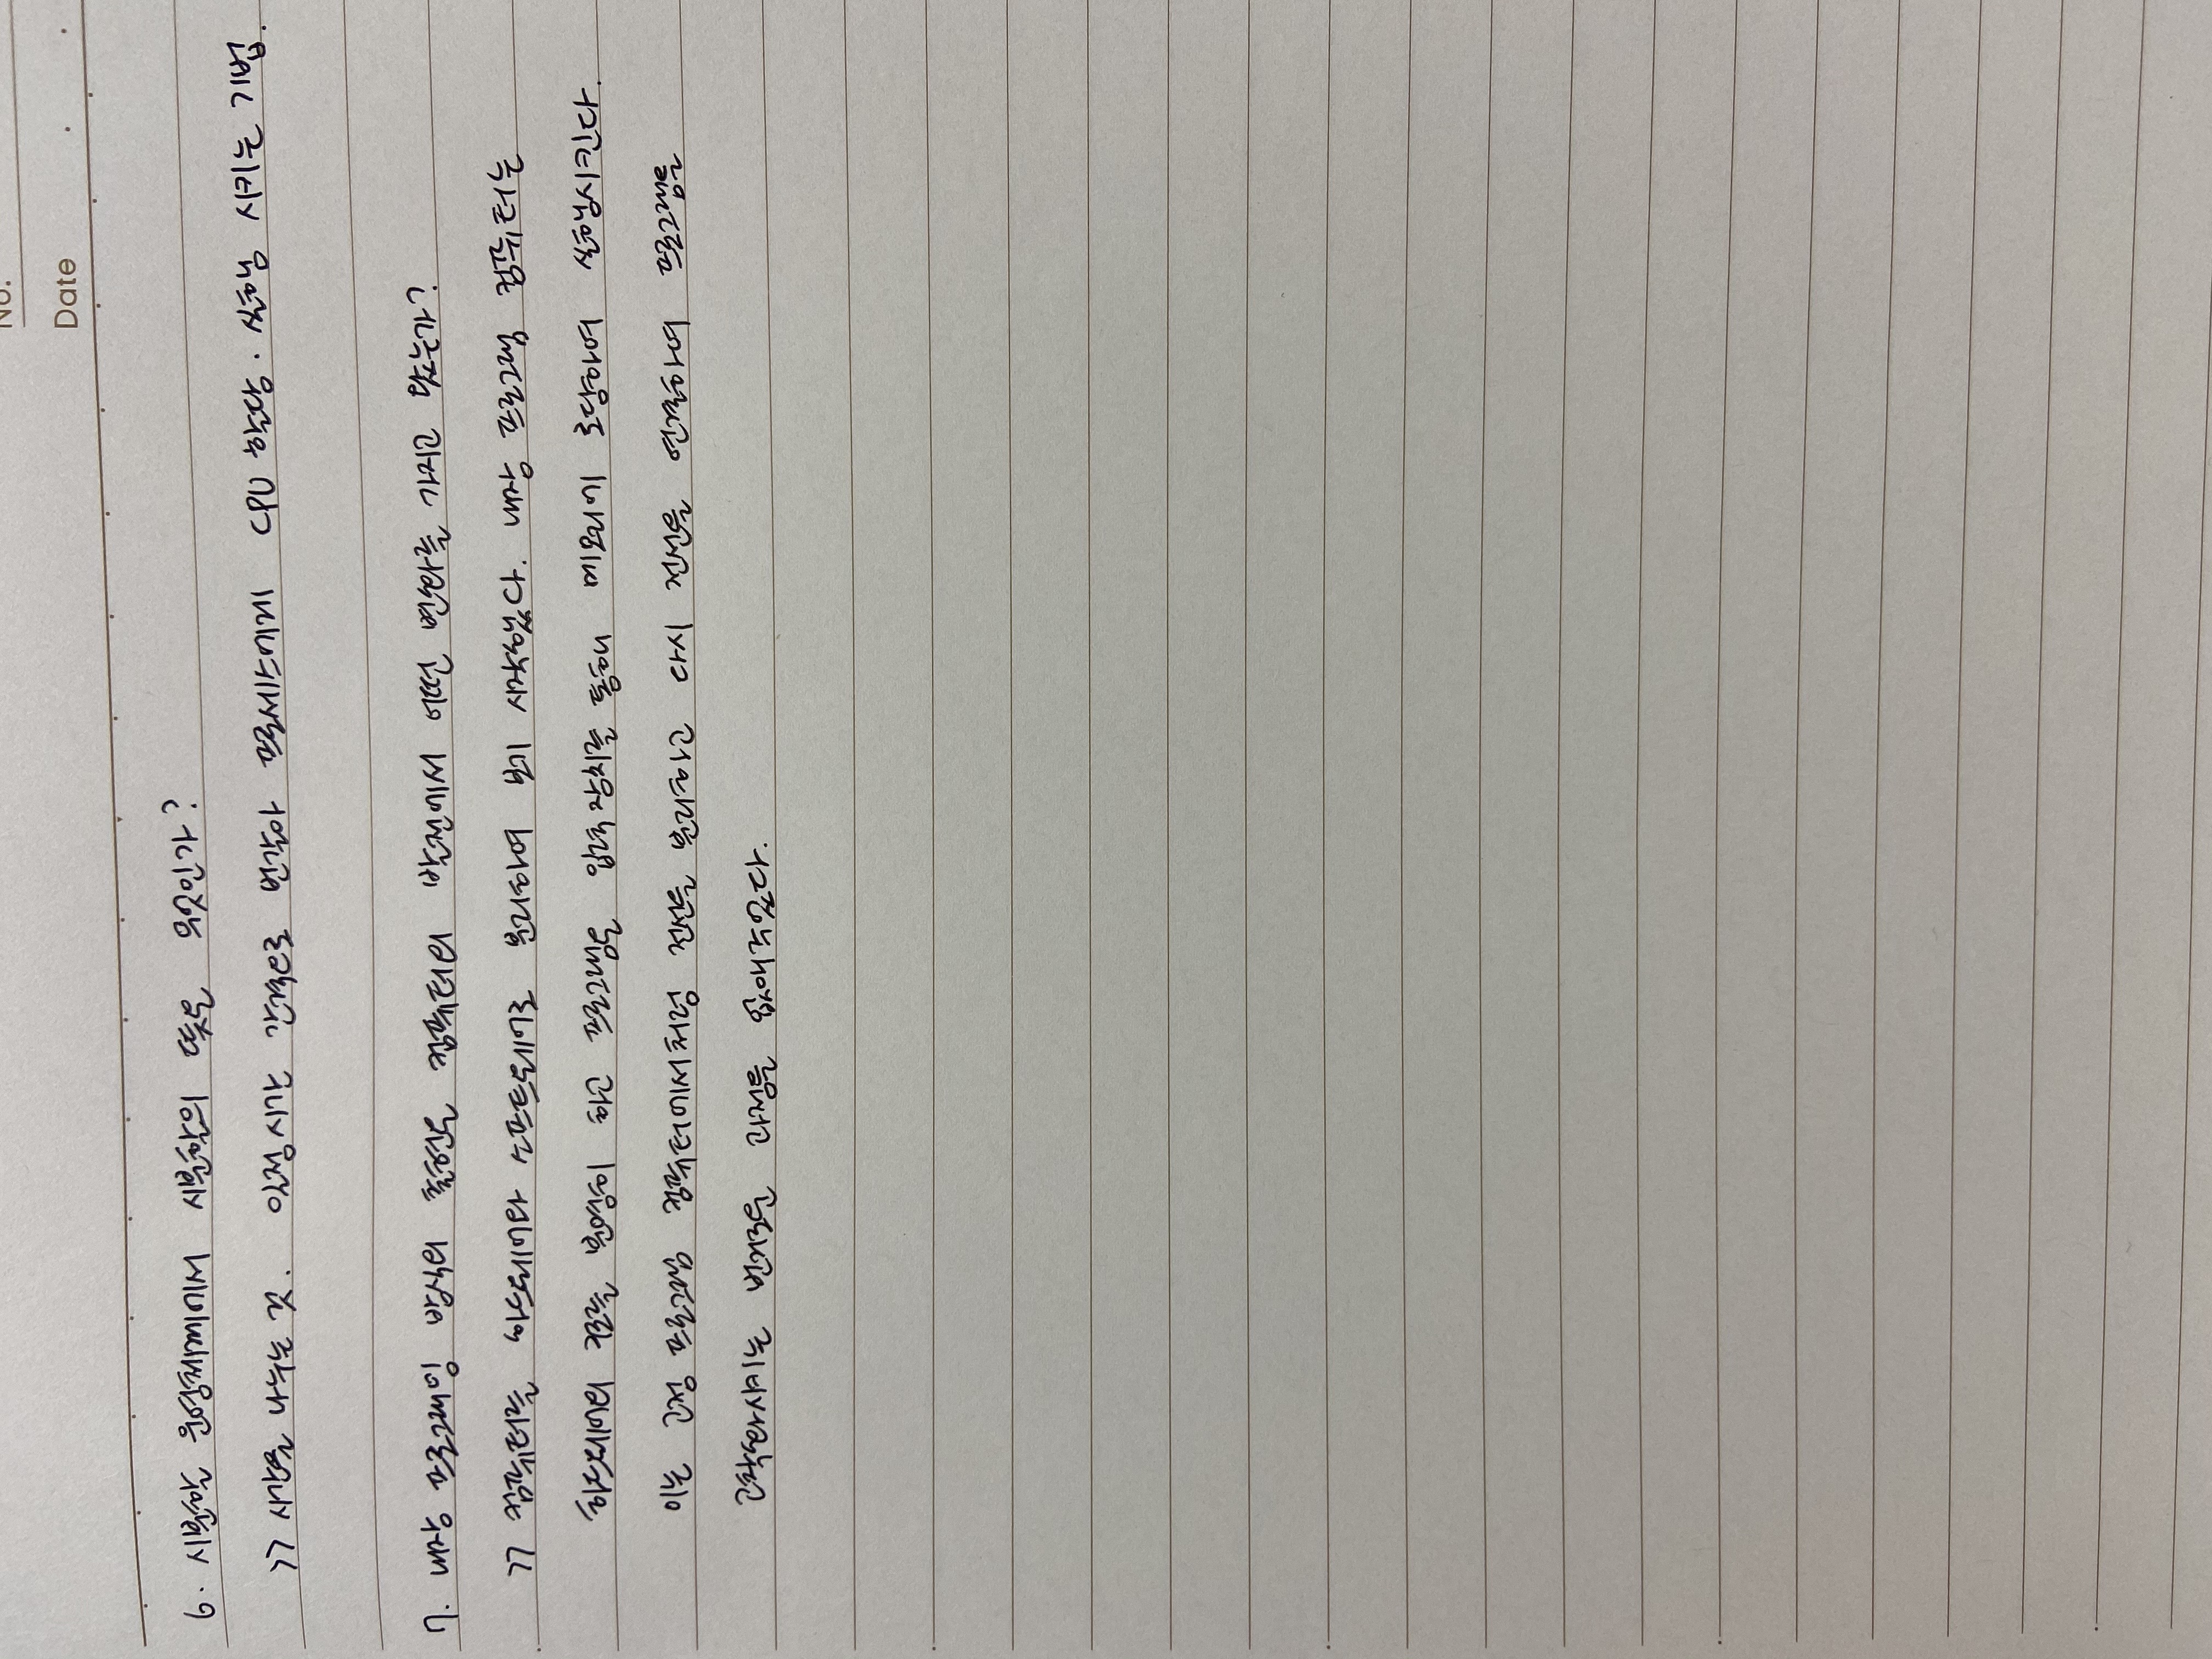 No.
Date
6. 시분할 운영체제에서 시분할의 뜻은 무엇인가?
>> 시간을 나누는 것. 일정 시간 간격으로 번갈아 프로세스에게 CPU 할당·실행 시키는 기법.
7. 내장 프로그래밍 방식의 출현은 컴퓨터의 발전에서 어떤 변화를 가지고 왔는가?
>> 컴퓨터를 하드웨어와 소프트웨어로 분리하여 보기 시작했다. 내장 프로그램 컴퓨터는
하드웨어의 구조를 분명히 하고 프로그램은 입력 장치를 통해 메모리에 로딩하여 실행시킨다.
이는 고정 프로그램 컴퓨터에서처럼 전선을 분리하고 다시 전선을 연결하여 프로그램을
고착화시키는 번거로운 과정을 없애주었다.